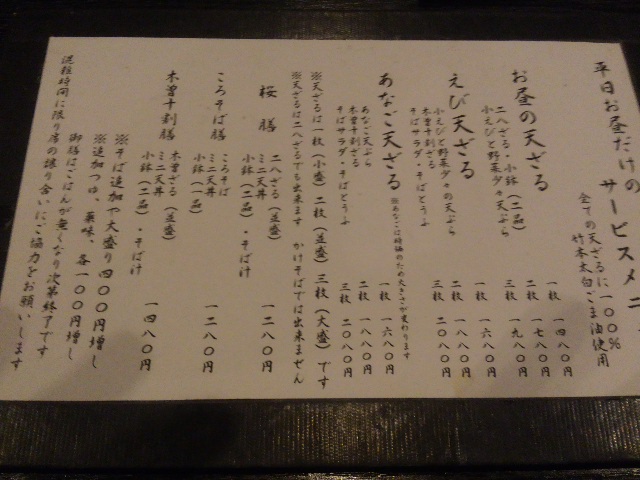 平日お昼だけの サービスメニ
全ての天ざるに100%
竹本太白ごま油使用
お昼の天ざる
二八ざる・小鉢(二品)
小えびと野菜夕々天ぷら
一枚 一四八〇円
二枚 一七八〇円
三枚 一九八〇円
えび天ざる
小えびと野菜夕々の天ぷら
木曽十割ざる
そばサラダ・そばとうふ
一枚 一六八〇円
二枚 一八八〇円
三枚 二〇八〇円
あなご天ざる ※あなごは時価のため大きさが変わります
あなご天ぷら
木曽十割ざる
そばサラダ・そばとうふ
一枚 一六八〇円
二枚 一八八〇円
三枚 二〇八〇円
※天ざるは一枚(小盛) 二枚(並盛) 三枚(大盛)です
※天ざるは二八ざるでも出来ます かけそばでは出来ません
桜 膳
二八ざる(並盛)
ミニ天丼
小鉢(二品)・そば汁
一二八〇円
ころそば膳
ころそば
ミニ天丼
小鉢(二品)
一二八〇円
木曽十割膳
木曽ざる(並盛)
ミニ天丼
小鉢(二品)・そば汁
一四八〇円
※そば追加や大盛り四〇〇円増し
※追加つゆ、薬味、各一〇〇円増し
御膳はごはんが無くなり次第終了です
混雑時間に限り席の譲り合いにご協力をお願いします